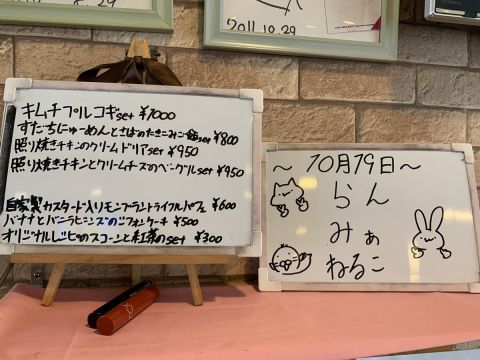 2011.10.29
2011.10.29
キムチプルコギset ¥1000
すだちにゅーめんとさばのたきこみご飯set ¥800
照り焼きチキンのクリームドリアset ¥950
照り焼きチキンとクリームチーズのベーグルset ¥950
自家製カスタード入りモンブラントライフルパフェ ¥600
バナナとバニラビーンズのシフォンケーキ ¥500
オリジナルレシピのスコーンと紅茶のset ¥300
～10月19日～
らん
みぁ
ねるこ